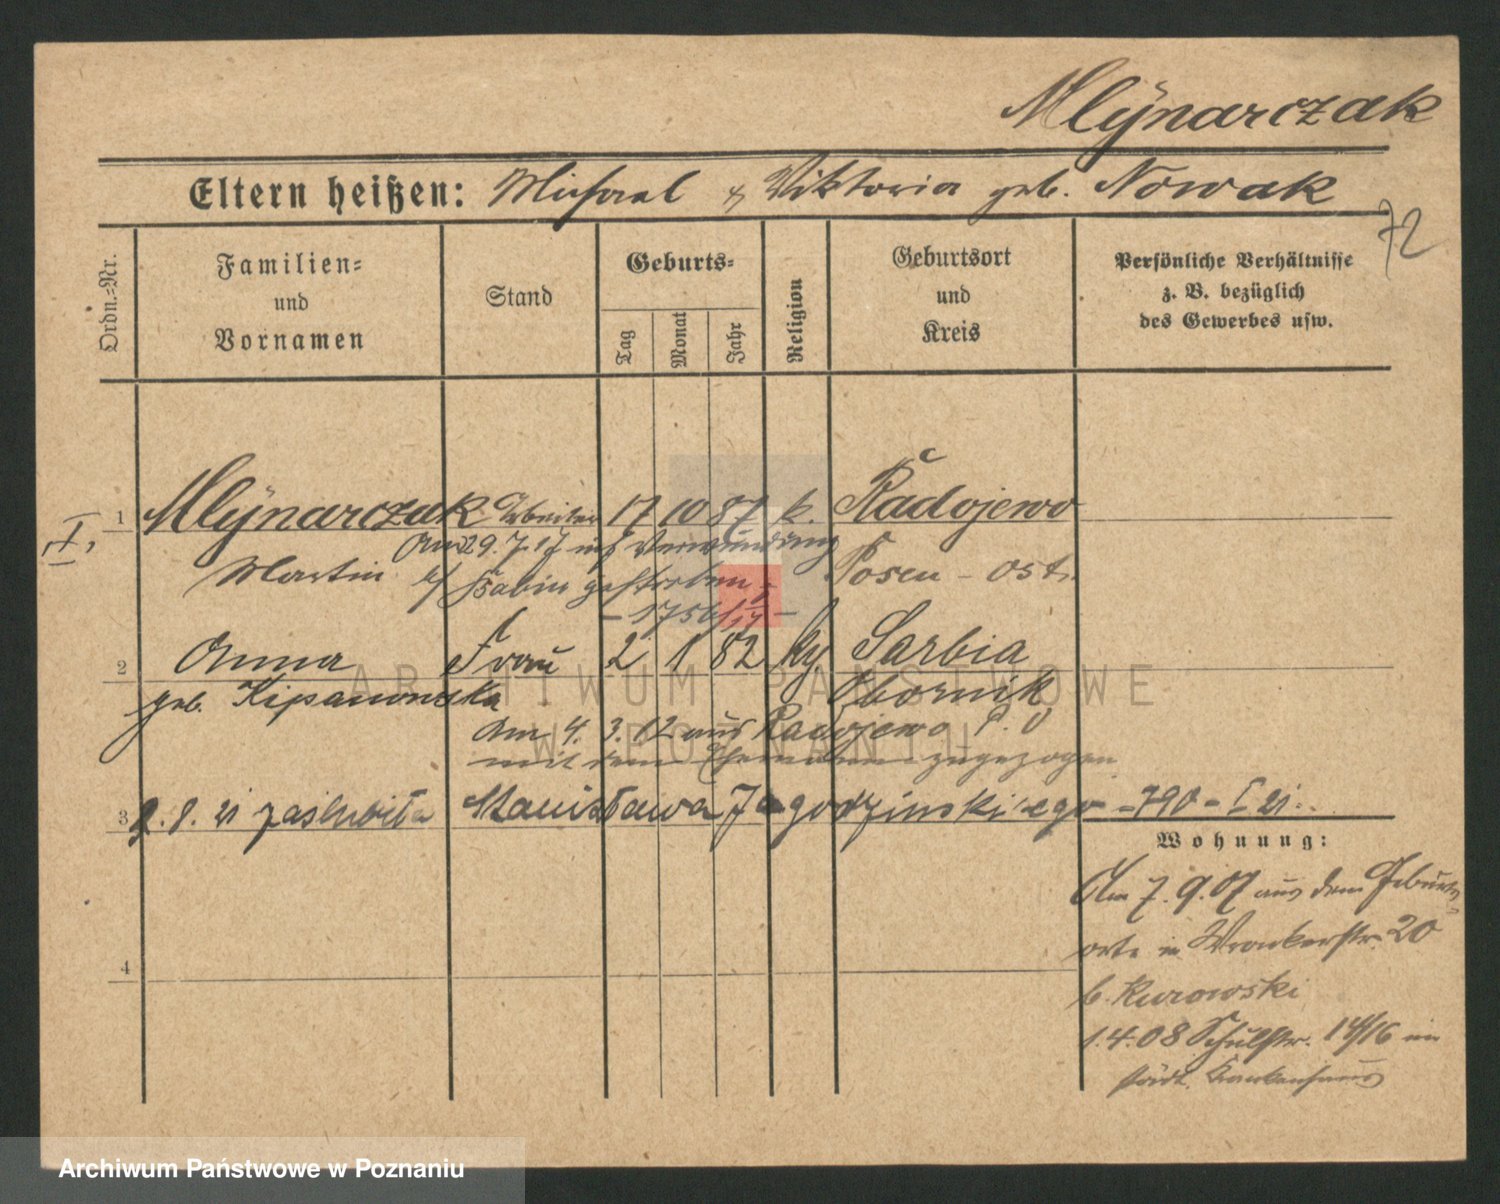 Mlynarczak
Eltern heißen: Michael & Viktoria geb. Nowak
72
Ordn.-Nr.
Familien- und Vornamen
Stand
Geburts-
Tag
Monat
Jahr
Religion
Geburtsort und Kreis
Persönliche Verhältnisse z. B. bezüglich des Gewerbes usw.
I.
1 Mlynarczak Arbeiter 17 10 87 k. Radojewo
Am 29.7.17 inf. Verwundung
Martin gestorben Posen - Ost.
- 1756/17 -
2 Anna Frau 2 1 82 Sarbia
geb. Obornik
Am 4. 3. 12 aus Radojewo P. O
mit dem Ehemann zugezogen
3 2. 8. 21 zaślubiła Stanisława Jagodzinskiego - 790 - I 21.
Wohnung:
Am 7. 9. 07 aus dem Geburts-
orte in Wronkerstr. 20
b. Kurowski
4
1. 4. 08 Schulstr. 14/16 im
städt. Krankenhaus
ARCHIWUM PAŃSTWOWE
W POZNANIU
Archiwum Państwowe w Poznaniu